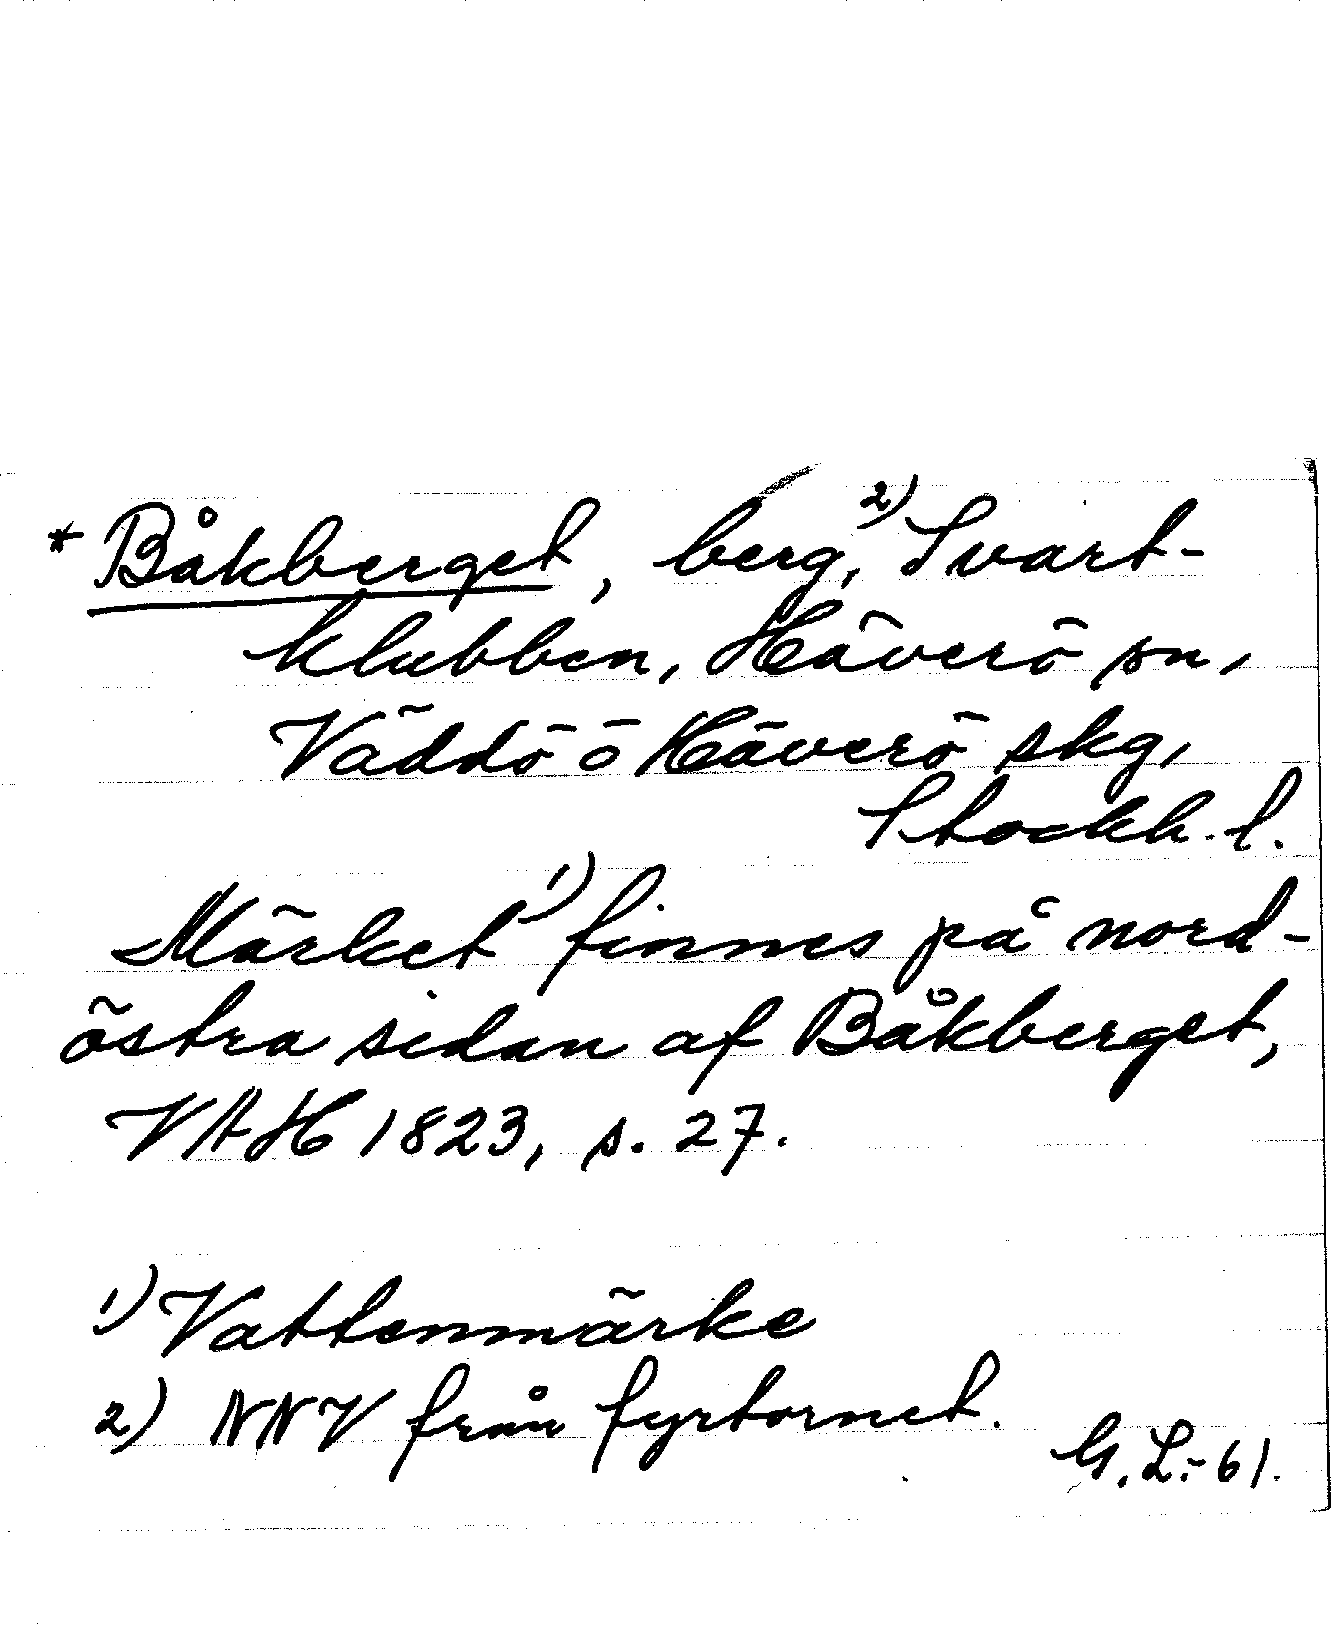 * Båkberget, berg,²⁾ Svart-
klubben, Häverö sn,
Väddö o Häverö skg,
Stockh. l.
Märket¹⁾ finnes på nord-
östra sidan af Båkberget,
VAH 1823, s. 27.
1) Vattenmärke
2) NNV från fyrtornet.
G. L. -61.